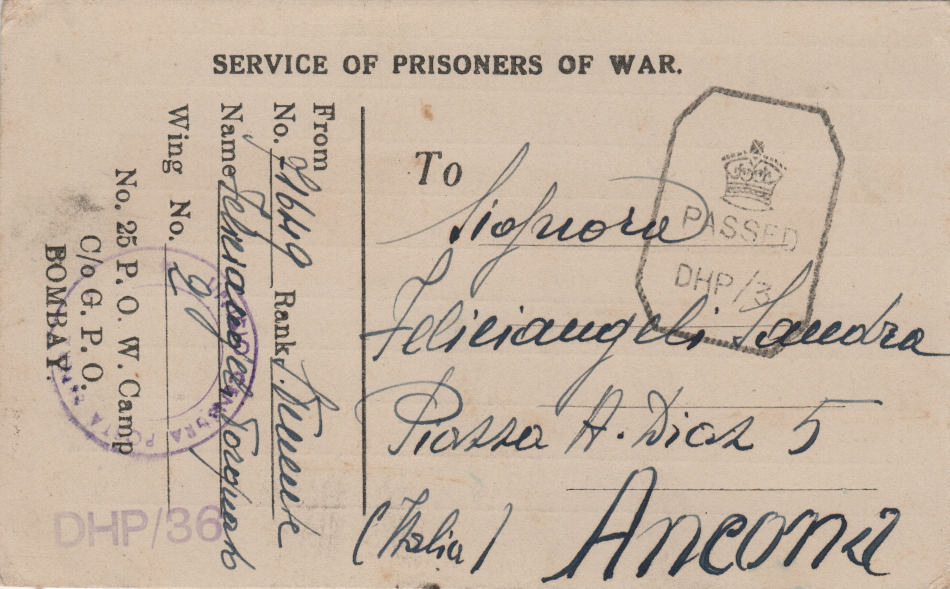 SERVICE OF PRISONERS OF WAR.
From
No. 21649 Rank S. Tenente
Name Feliciangeli Torquato
Wing No. 2
No. 25 P. O. W. Camp
C/o G. P. O.
BOMBAY.
To
Signora
Feliciangeli Sandra
Piazza A. Diaz 5
Ancona
(Italia)
PASSED
DHP/3
DHP/36